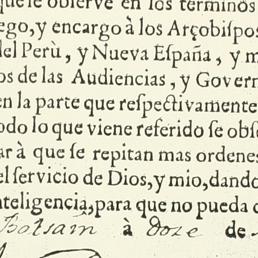 que se observe en los terminos
ego, y encargo à los Arçobispos
del Perù, y Nueva España, y m
os de las Audiencias, y Govern
en la parte que respectivamente
odo lo que viene referido se obs
ar à que se repitan mas ordenes
el servicio de Dios, y mio, dando
nteligencia, para que no pueda c
Balsaín à doze de